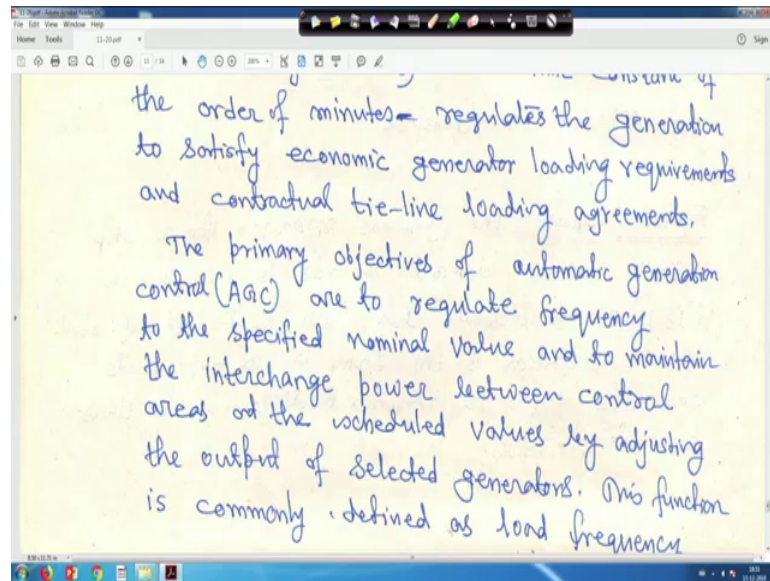 File Edit View Window Help
Home Tools 11-20.pdf × Sign
the order of minutes- regulates the generation
to satisfy economic generator loading requirements
and contractual tie-line loading agreements.
The primary objectives of automatic generation
control (AGC) are to regulate frequency
to the specified nominal value and to maintain
the interchange power between control
areas at the scheduled values by adjusting
the output of selected generators. This function
is commonly defined as load frequency